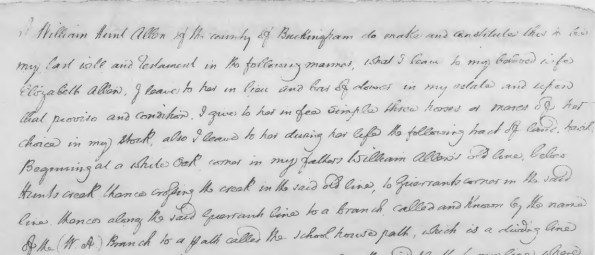 I William Hunt Allen of the county of Buckingham do make and constitute this to be
my last will and Testament in the following manner, what I leave to my beloved wife
Elizabeth Allen. I leave to her in lieu and bar of dower in my estate and upon
that proviso and condition. I give to her in fee Simple three horses or mares of her
choice in my Stock, also I leave to her during her life the following tract of land,
Beginning at a white Oak corner in my fathers William Allen's old line, below
Hunts creek thence crossing the creek in the said old line, to Guerrants corner in the said
line thence along the said Guerrant line to a branch called and known by the name
of the (W A) Branch to a path called the school house path, which is a dividing line